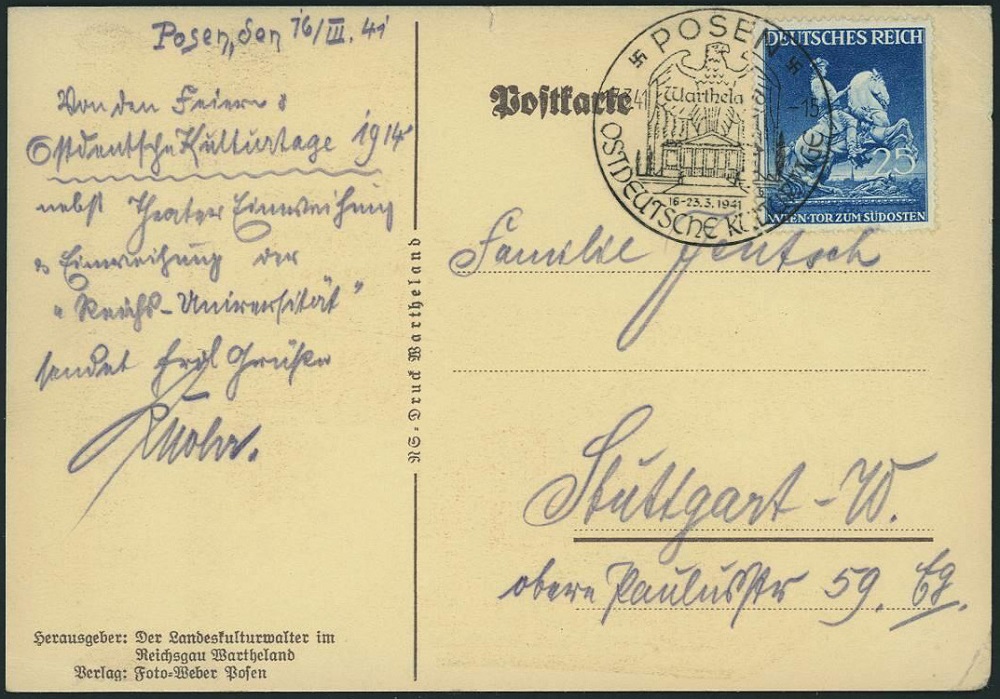 Posen, den 16/III. 41
Von den Feiern d
Ostdeutsche Kulturtage 1914
nebst Theater Einweihung
& Einweihung der
"Reichs-Universität"
sendet herzl Grüße
Mohr.
Herausgeber: Der Landeskulturwalter im
Reichsgau Wartheland
Verlag: Foto-Weber Posen
NS-Druck Wartheland
Postkarte
POSEN
Warthela
41
-15
16-23.3.1941
OSTDEUTSCHE KULTURTAGE
DEUTSCHES REICH
25
WIEN-TOR ZUM SÜDOSTEN
Familie Jentsch
Stuttgart-W.
obere Paulusstr 59.